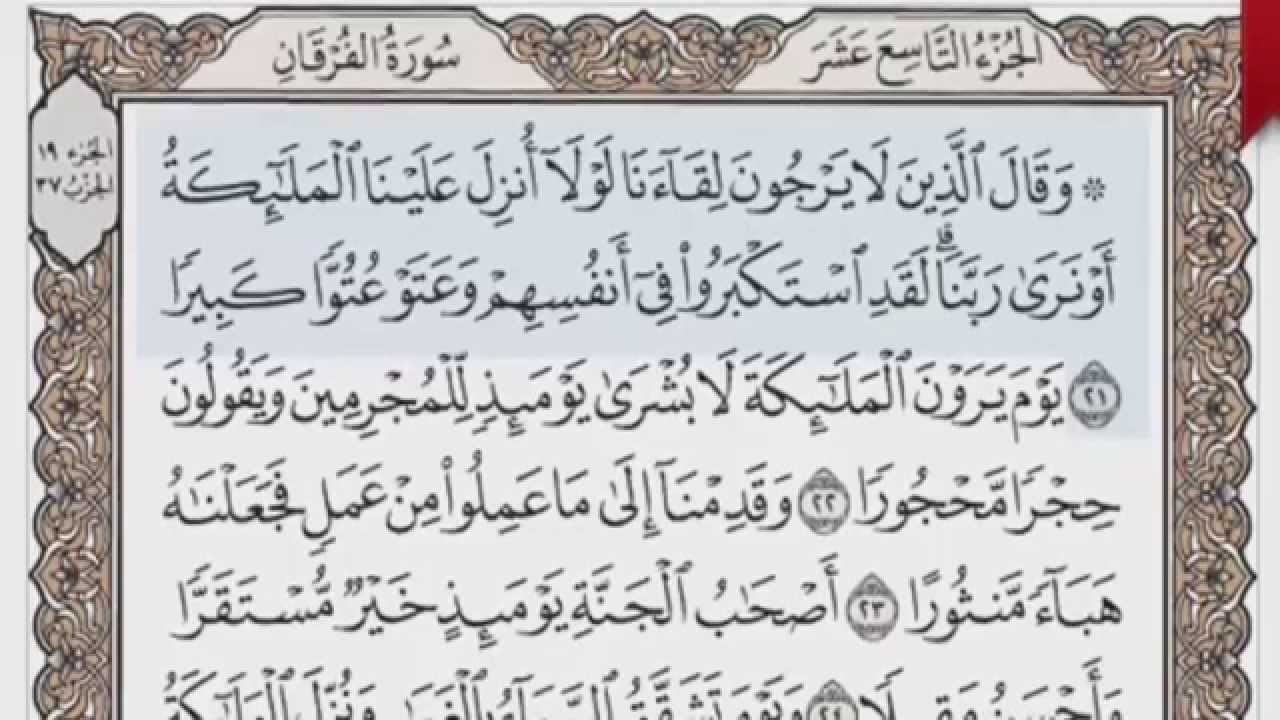 الجُزْءُ التَّاسِعَ عَشَرَ
سُورَةُ الفُرْقَانِ
الجُزْء ١٩
الحِزْبُ ٣٧
۞ وَقَالَ ٱلَّذِينَ لَا يَرْجُونَ لِقَآءَنَا لَوْلَآ أُنزِلَ عَلَيْنَا ٱلْمَلَـٰٓئِكَةُ
أَوْ نَرَىٰ رَبَّنَا ۗ لَقَدِ ٱسْتَكْبَرُوا۟ فِىٓ أَنفُسِهِمْ وَعَتَوْ عُتُوًّا كَبِيرًا
٢١ يَوْمَ يَرَوْنَ ٱلْمَلَـٰٓئِكَةَ لَا بُشْرَىٰ يَوْمَئِذٍ لِّلْمُجْرِمِينَ وَيَقُولُونَ
حِجْرًا مَّحْجُورًا ٢٢ وَقَدِمْنَآ إِلَىٰ مَا عَمِلُوا۟ مِنْ عَمَلٍ فَجَعَلْنَـٰهُ
هَبَآءً مَّنثُورًا ٢٣ أَصْحَـٰبُ ٱلْجَنَّةِ يَوْمَئِذٍ خَيْرٌ مُّسْتَقَرًّا
وَأَحْسَنُ مَقِيلًا ٢٤ وَيَوْمَ تَشَقَّقُ ٱلسَّمَآءُ بِٱلْغَمَـٰمِ وَنُزِّلَ ٱلْمَلَـٰٓئِكَةُ